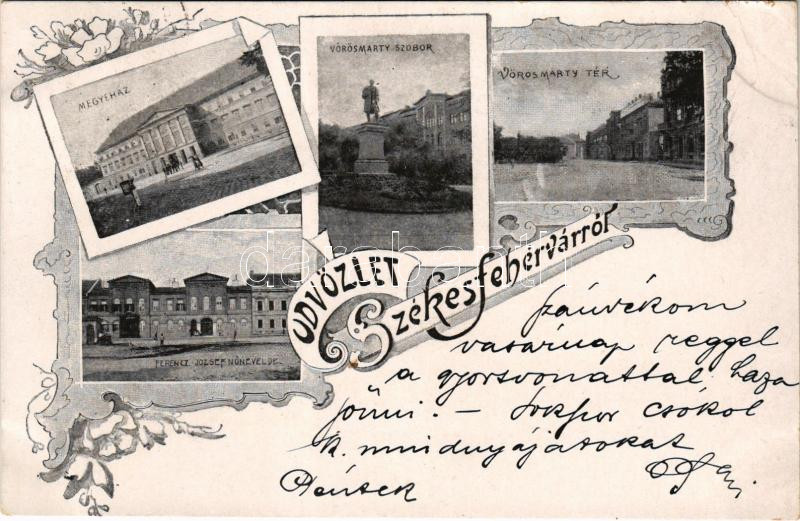 MEGYEHÁZ
VÖRÖSMARTY SZOBOR
VÖRÖSMARTY TÉR
FERENCZ JÓZSEF NŐNEVELDE
ÜDVÖZLET
Székesfehérvárról
darabanth
Szándékom
vasárnap reggel
a gyorsvonattal haza
jönni. – Sokszor csókol
k. mindnyájatokat
Péntek